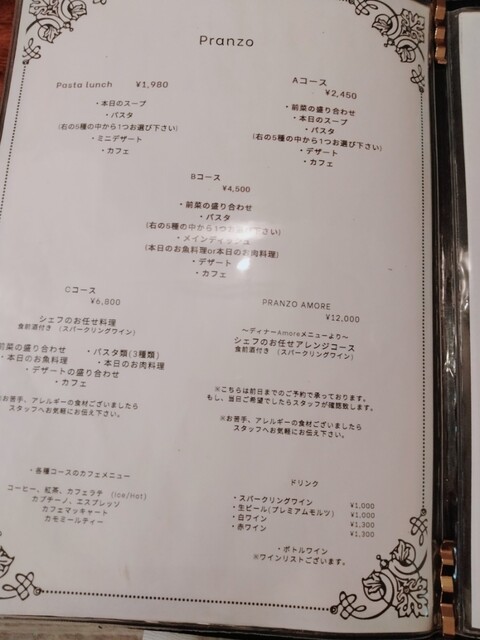 Pranzo
Pasta lunch ¥1,980
・本日のスープ
・パスタ
(右の5種の中から1つお選び下さい)
・ミニデザート
・カフェ
Aコース
¥2,450
・前菜の盛り合わせ
・本日のスープ
・パスタ
(右の5種の中から1つお選び下さい)
・デザート
・カフェ
Bコース
¥4,500
・前菜の盛り合わせ
・パスタ
(右の5種の中から1つお選び下さい)
・メインディッシュ
(本日のお魚料理or本日のお肉料理)
・デザート
・カフェ
Cコース
¥6,800
シェフのお任せ料理
食前酒付き (スパークリングワイン)
前菜の盛り合わせ ・パスタ類(3種類)
・本日のお魚料理 ・本日のお肉料理
・デザートの盛り合わせ
・カフェ
※お苦手、アレルギーの食材ございましたら
スタッフへお気軽にお伝え下さい。
PRANZO AMORE
¥12,000
～ディナーAmoreメニューより～
シェフのお任せアレンジコース
食前酒付き (スパークリングワイン)
※こちらは前日までのご予約で承っております。
もし、当日ご希望でしたらスタッフが確認致します。
※お苦手、アレルギーの食材ございましたら
スタッフへお気軽にお伝え下さい。
・各種コースのカフェメニュー
コーヒー、紅茶、カフェラテ (Ice/Hot)
カプチーノ、エスプレッソ
カフェマッキャート
カモミールティー
ドリンク
・スパークリングワイン ¥1,000
・生ビール(プレミアムモルツ) ¥1,000
・白ワイン ¥1,300
・赤ワイン ¥1,300
・ボトルワイン
※ワインリストございます。